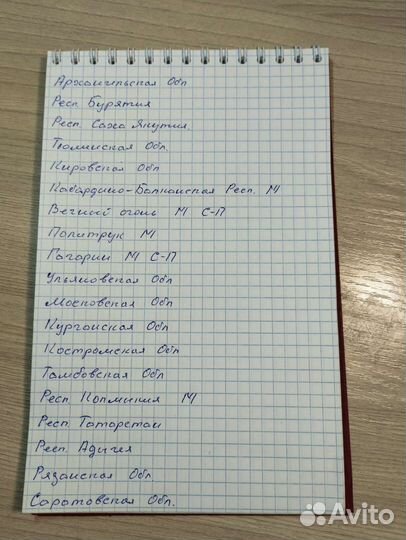 Архангельская Обл
Респ. Бурятия
Респ. Саха Якутия.
Тюминская Обл.
Кировская Обл
Кабардино-Балкаиская Респ. М
Вечный огонь М С-П
Политрук М
Гагарин М С-П
Ульяновская Обл
Московская Обл
Курганская Обл
Костромская Обл
Тамбовская Обл
Респ Колмыкия М
Респ. Татарстан
Респ. Адыгея
Рязанская Обл
Саратовская Обл.
Avito